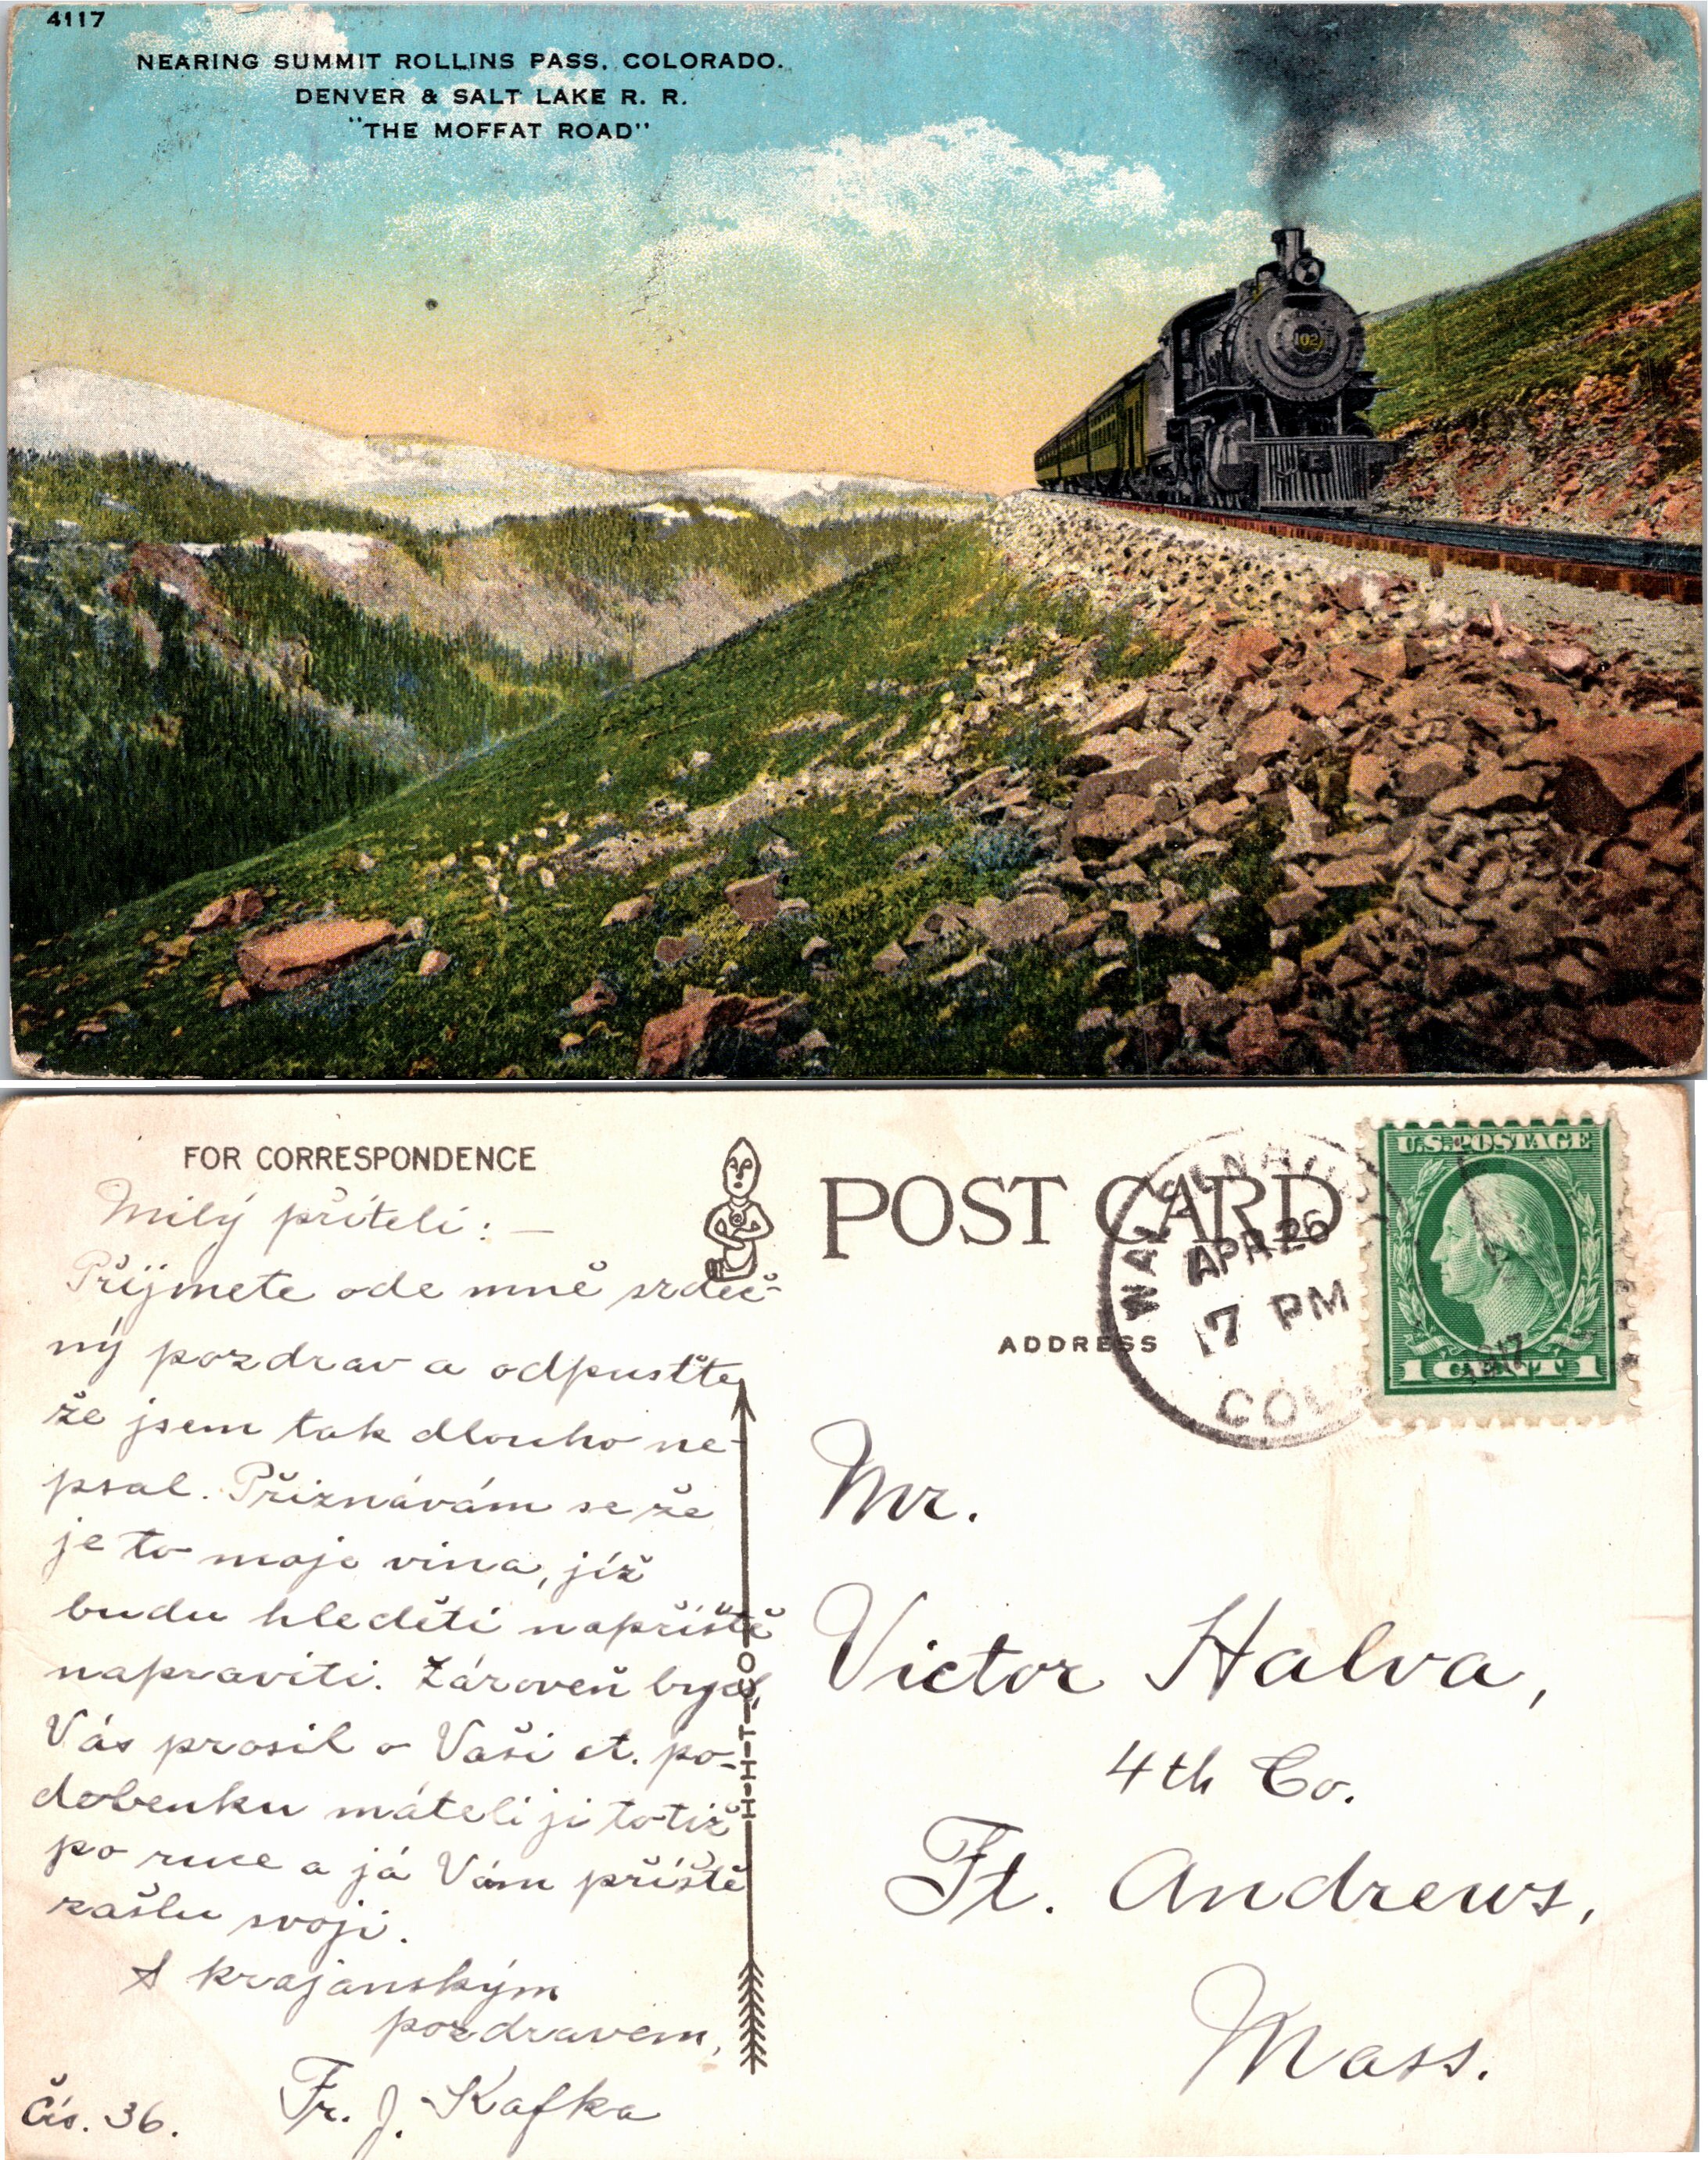 4117
NEARING SUMMIT ROLLINS PASS, COLORADO.
DENVER & SALT LAKE R. R.
"THE MOFFAT ROAD"
102
FOR CORRESPONDENCE
Milý příteli: —
Přijmete ode mně srdeč-
ný pozdrav a odpusťte
že jsem tak dlouho ne-
psal. Přiznávám se že
je to moje vina, jíž
budu hleděti napříště
napraviti. Zároveň bych
Vás prosil o Vaši ct. po-
dobenku máteli ji totiž
po ruce a já Vám příště
zašlu svoji.
S krajanským
pozdravem,
Fr. J. Kafka
Čís. 36.
H-H-T-CO
POST CARD
ADDRESS
APR 26
7 PM
COLO
U.S. POSTAGE
1 CENT 1
Mr.
Victor Halva,
4th Co.
Ft. Andrews,
Mass.